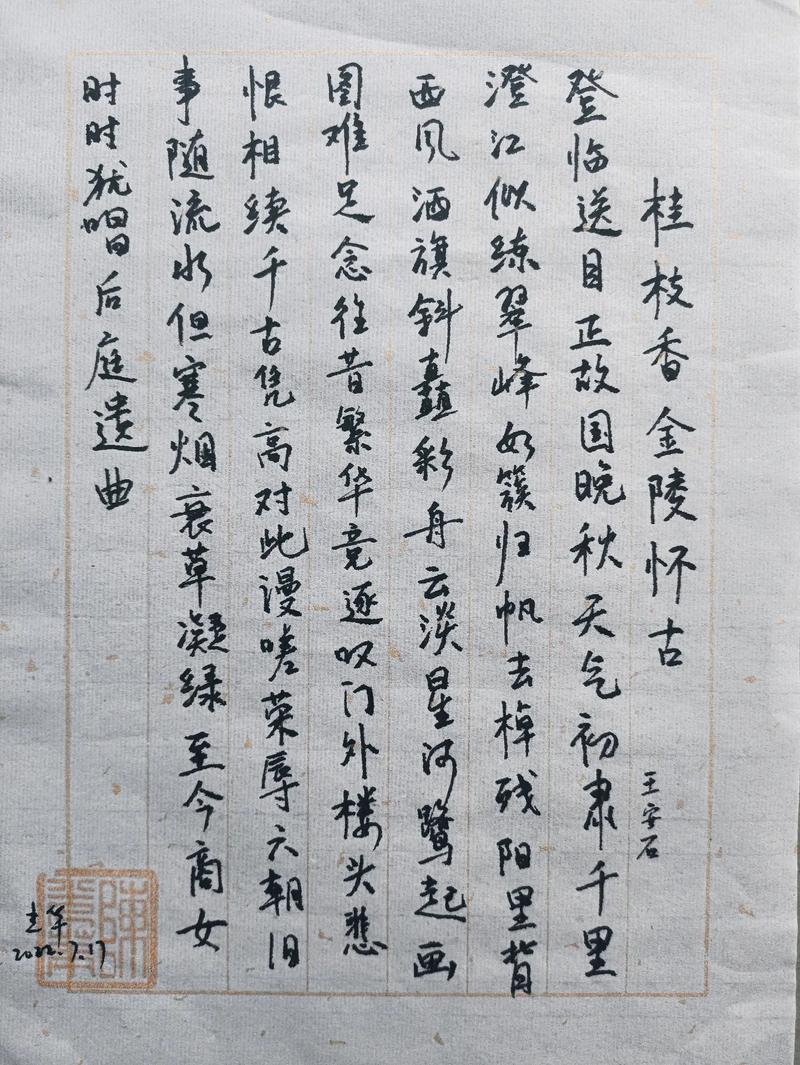 桂枝香金陵怀古
王安石
登临送目正故国晚秋天气初肃千里
澄江似练翠峰如簇归帆去棹残阳里背
西风酒旗斜矗彩舟云淡星河鹭起画
图难足念往昔繁华竞逐叹门外楼头悲
恨相续千古凭高对此漫嗟荣辱六朝旧
事随流水但寒烟衰草凝绿至今商女
时时犹唱后庭遗曲
2022.7.17